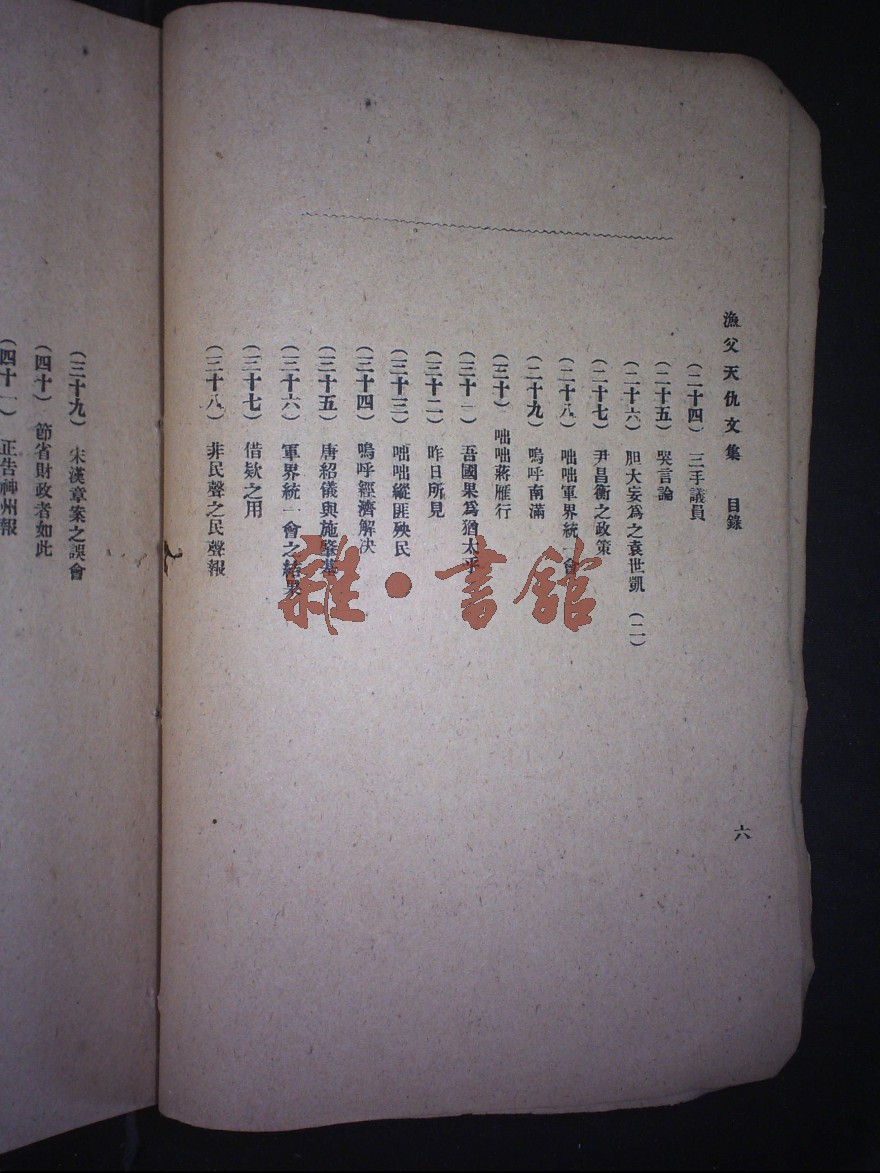 漁父天仇文集　目錄
六
（二十四）三手議員
（二十五）哭言論
（二十六）胆大妄爲之袁世凱（二）
（二十七）尹昌衡之政策
（二十八）咄咄軍界統一會
（二十九）嗚呼南滿
（三十）咄咄蔣雁行
（三十一）吾國果爲猶太乎
（三十二）昨日所見
（三十三）咄咄縱匪殃民
（三十四）嗚呼經濟解决
（三十五）唐紹儀與施肇基
（三十六）軍界統一會之結果
（三十七）借欵之用
（三十八）非民聲之民聲報
（三十九）宋漢章案之誤會
（四十）節省財政者如此
（四十一）正告神州報
雜・書館